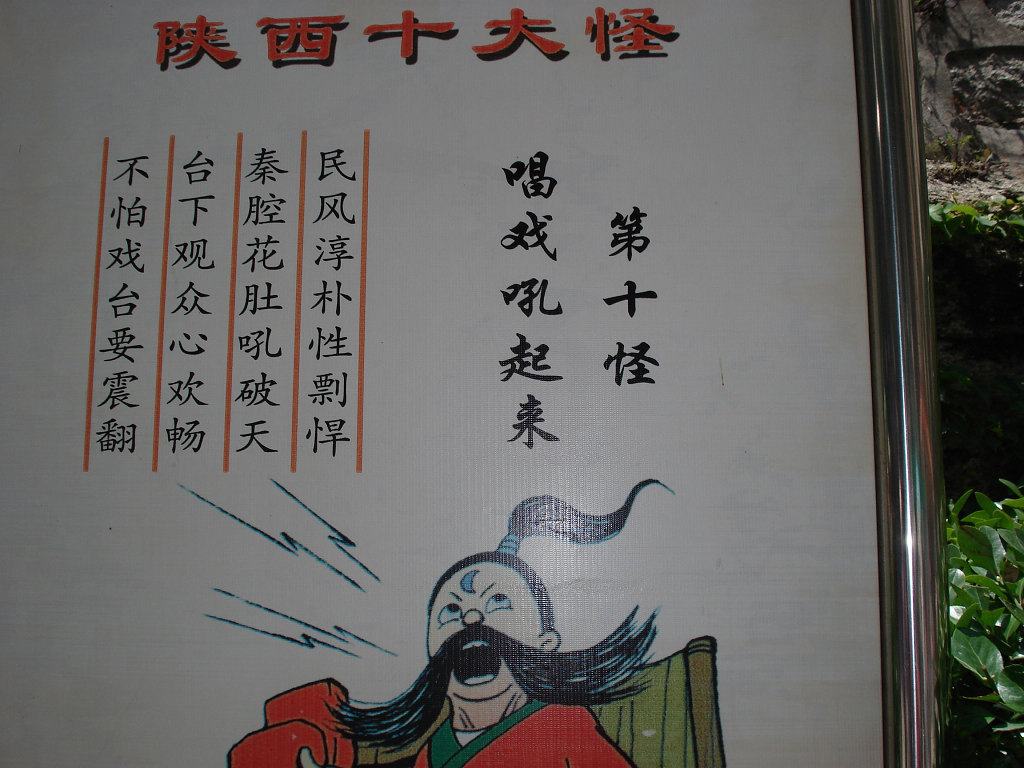 陕西十大怪
第十怪
唱戏吼起来
民风淳朴性剽悍
秦腔花肚吼破天
台下观众心欢畅
不怕戏台要震翻